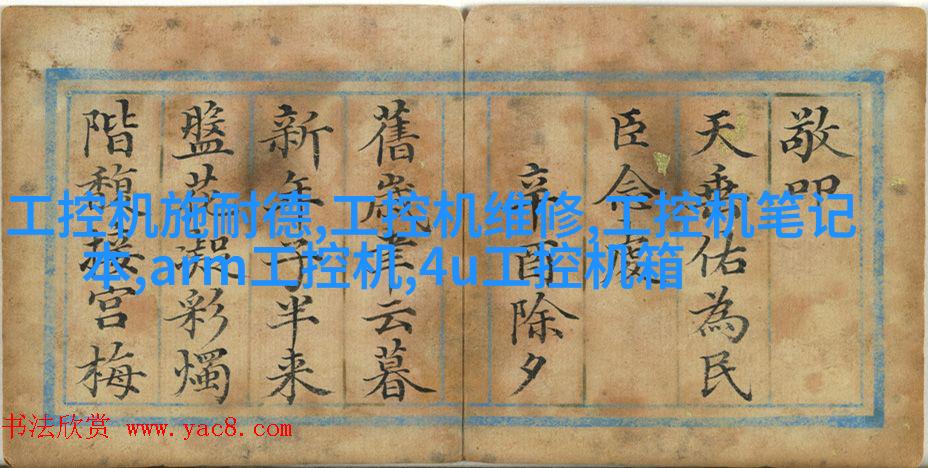 敬叩
天垂佑為民
臣念虔
辛酉除夕
舊歲聿云暮
新年子半来
盤花凝彩燭
階馥接宮梅
工控机施耐德,工控机维修,工控机笔记
本,arm工控机,4u工控机箱
书法欣赏 www.yac8.com